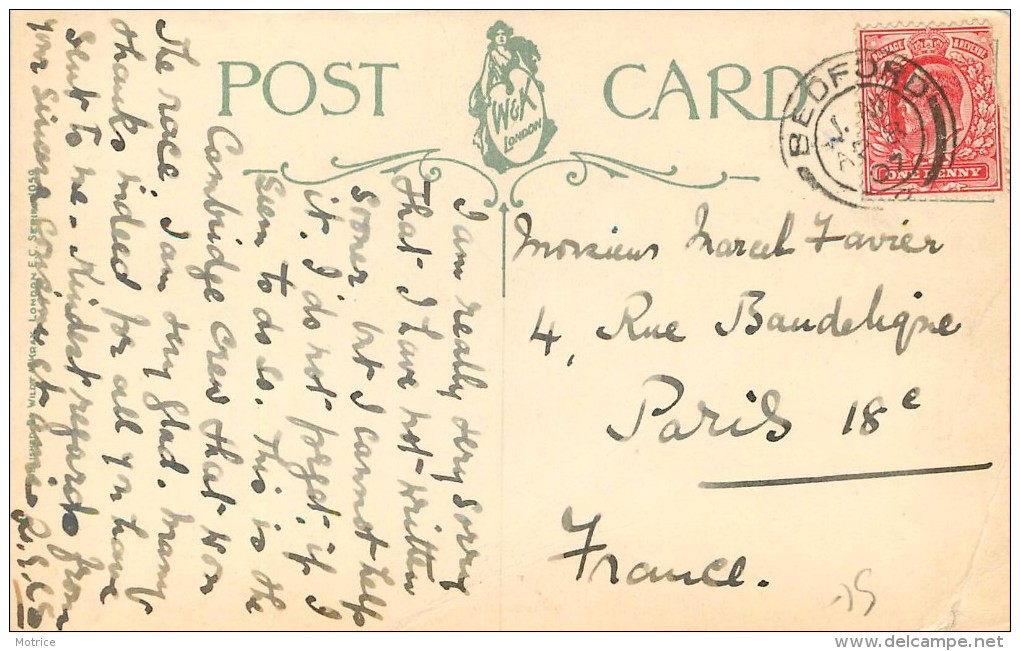 POST CARD
W&K
LONDON
POSTAGE & REVENUE
ONE PENNY
BEDFORD
07
I am really very sorry
that I have not written
sooner but I cannot help
it. I do not forget, if I
seem to do so. This is the
Cambridge crew that won
the race, I am very glad. Many
thanks indeed for all you have
sent to me. Kindest regards from
your sincere
Monsieur Marcel Favier
4, Rue Baudelique
Paris 18e
France.
LONDON E.C. SERIES 1059
Motrice
www.delcampe.net